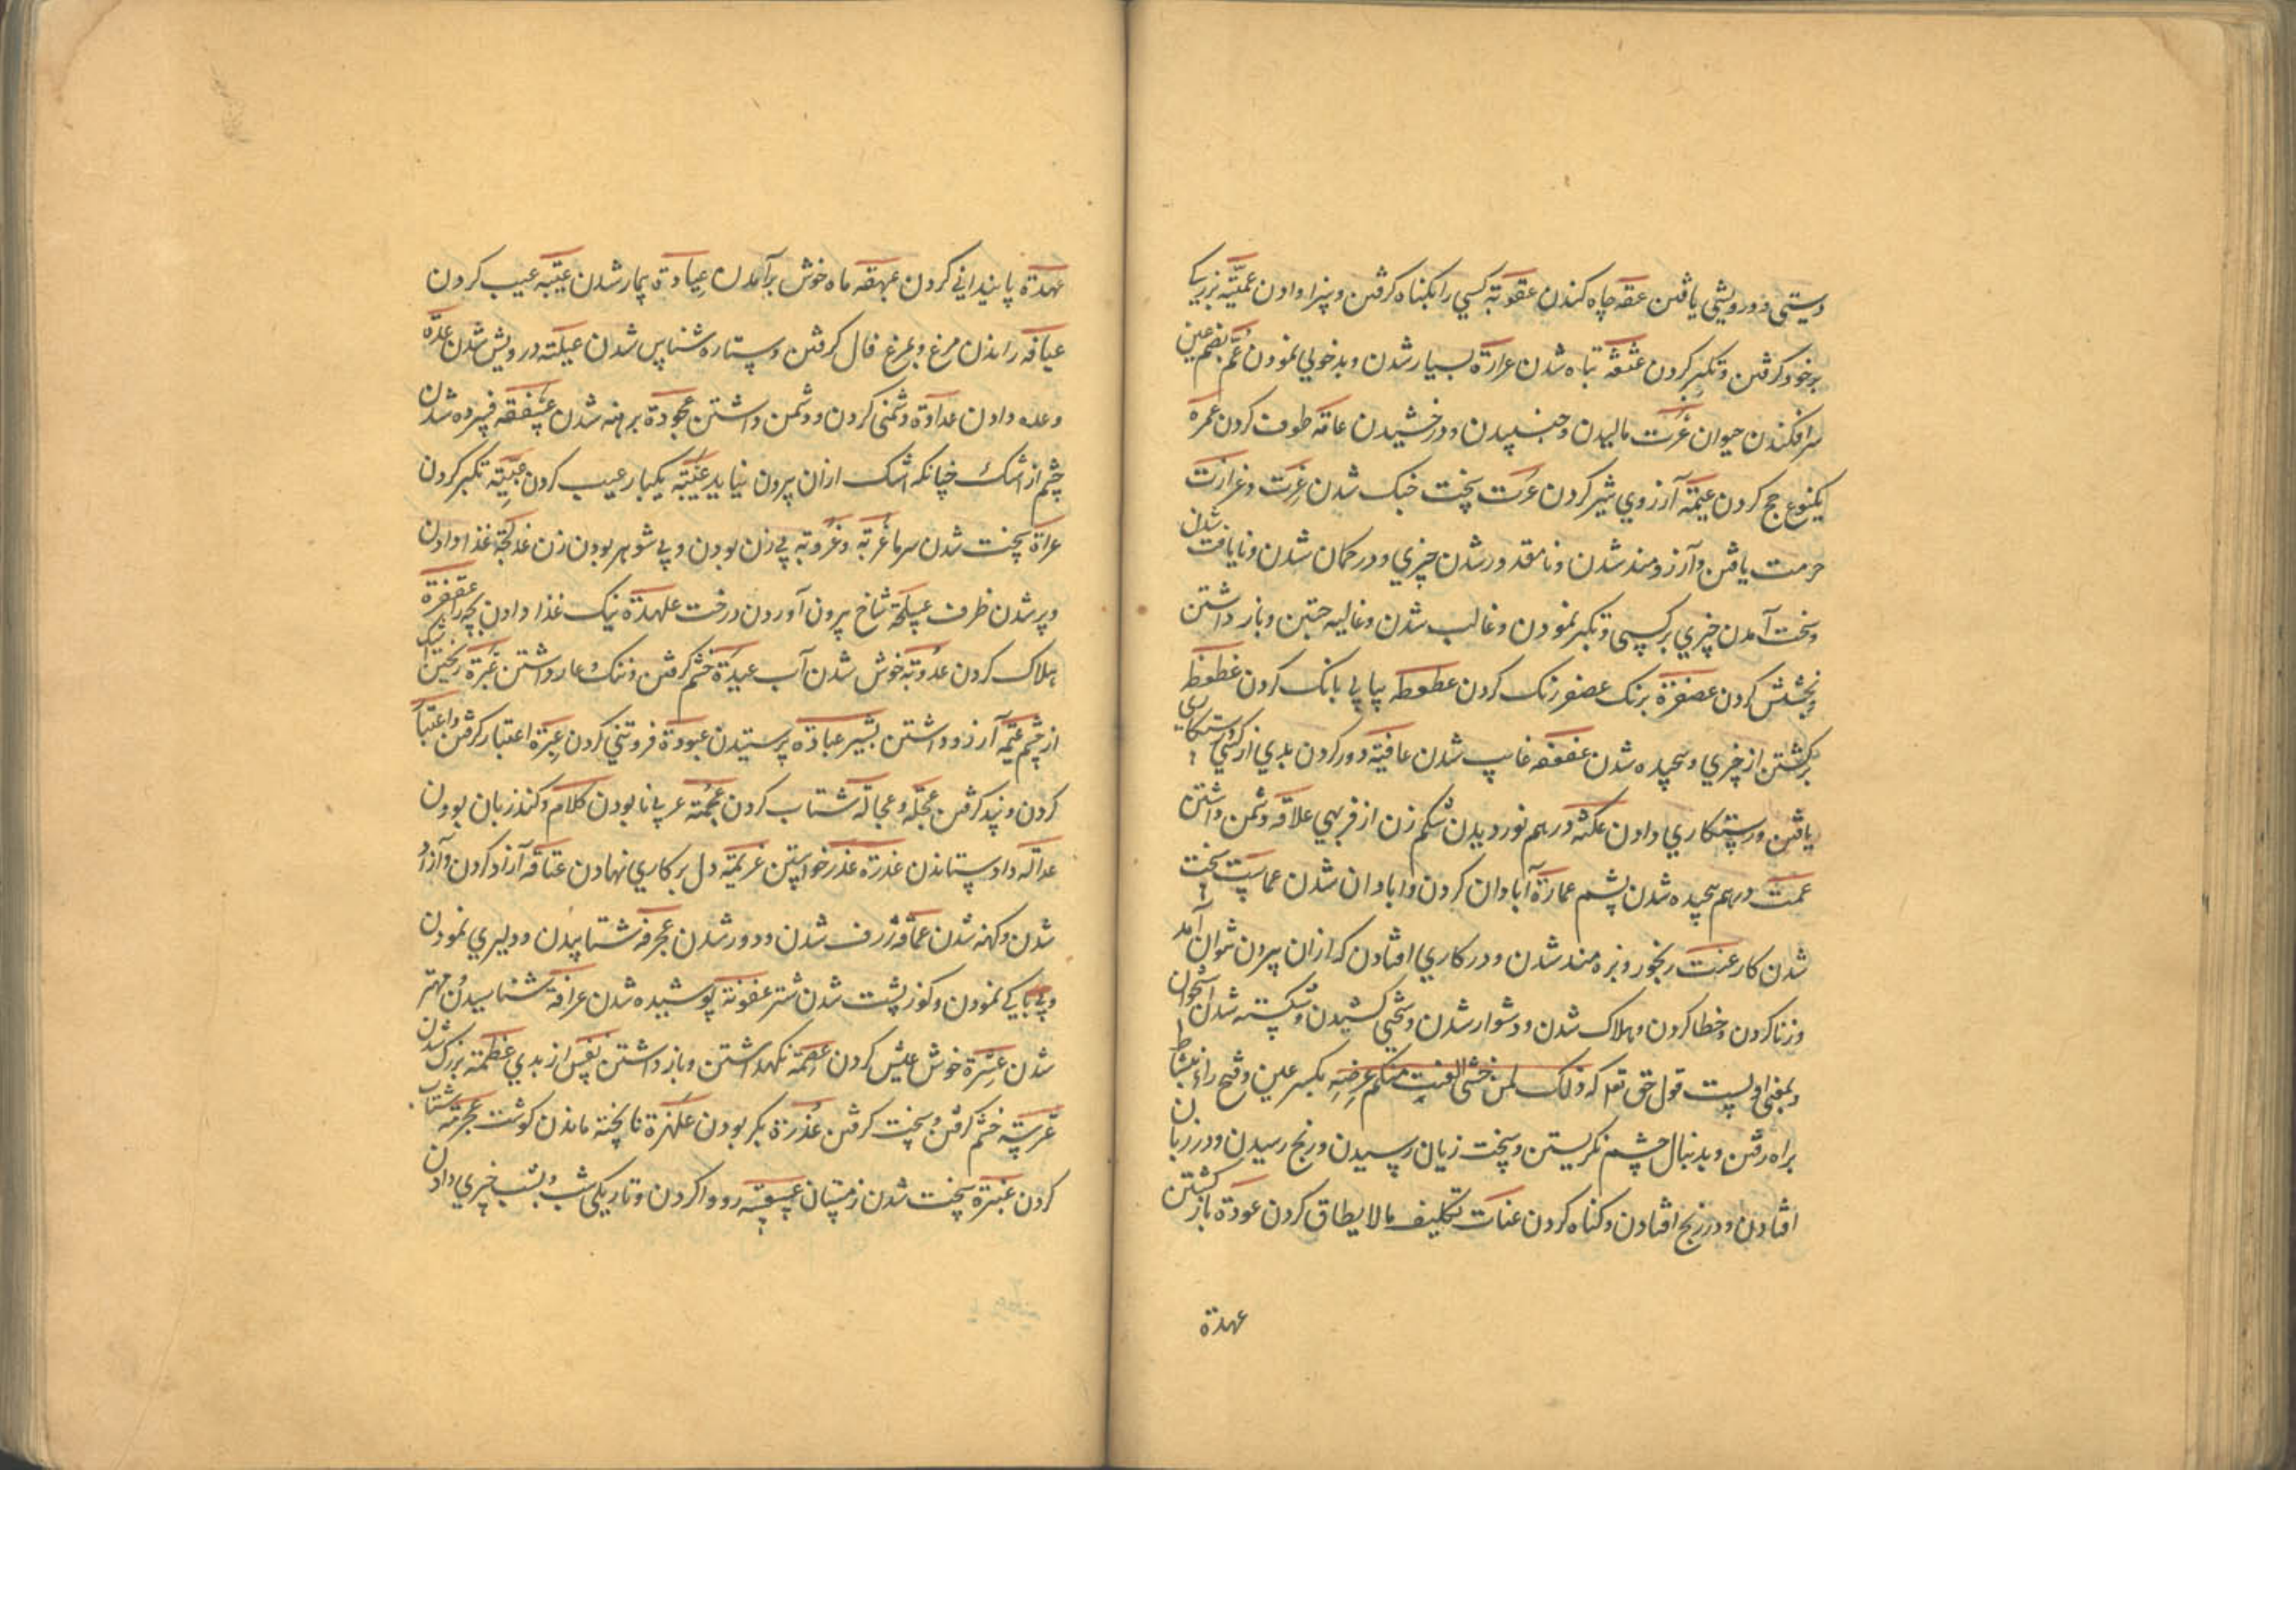 دستی و درویشی یافتن عقه چاه کندن عقوبة کسی را بکناه کرفتن و سزا دادن عمیّة بزرکی
برخود کرفتن و تکبر کردن عثعثه تباه شدن عرارة بسیار شدن و بدخویی نمودن عمّ بضم عین
سرافکندن حیوان عرت مالیدن و جنبیدن و درخشیدن عاقه طوف کردن عمرة
یکنوع حج کردن عیمة آرزوی شیر کردن عزت سخت خبک شدن عزت و عزازت
حرمت یافتن و آرزومند شدن و نامقدور شدن چیزی و در کمان شدن و نایافت شدن
و سخت آمدن چیزی بر کسی و تکبر نمودن و غالب شدن و غالیه جستن و باز داشتن
و بخشش کردن عصفرة برنک عصفر رنک کردن عطوطه پیاپی بانک کردن
برکشتن از چیزی و پیچیده شدن شدن عافیة دور کردن بدی از کسی و رستکاری
یافتن و رستکاری دادن عکنه درهم نوردیدن شکم زن از فربهی علاقه دشمن داشتن
عمت درهم پیچیده شدن پشم عمارة آبادان کردن و ابادان شدن عماست سخت
شدن کار عنت رنجور و بزه مند شدن و در کاری افتادن که ازان بیرون نتوان آمد
و زنا کردن و خطا کردن و هلاک شدن و دشوار شدن و سختی کشیدن و شکسته شدن استخوان
و بمعنی اولیست قول حق تعا که ذلک لمن خشی العنت منکم عرضه بکسر عین و فتح راء بنشاط
براه رفتن و بدنبال چشم نکریستن و سخت زیان رسیدن و رنج رسیدن و در زیان
افتادن و در رنج افتادن و کناه کردن عنات تکلیف مالایطاق کردن عودة باز کشتن
عهدة
عهدة پایندانی کردن عبهقه ماه خوش برآمدن عیادة بیمار شدن عیبة عیب کردن
عیافه راندن مرغ و بمرغ فال کرفتن و ستاره شناس شدن عیلة درویش شدن عدّه
وعده دادن عداوة دشمنی کردن و دشمن داشتن برهنه شدن فسرده شدن
چشم از اشک چنانکه اشک ازان بیرون نیاید یکبار عیب کردن عبیّة تکبر کردن
عراة سخت شدن سرما عزبة و عزوبة بی زن بودن و بی شوهر بودن زن غذا دادن
و پر شدن ظرف عسلجة شاخ بیرون آوردن درخت علهدة نیک غذا دادن بچه را
هلاک کردن عذوبة خوش شدن آب عبدة خشم کرفتن و ننک و عار داشتن عبرة ریختن اشک
از چشم عیمة آرزو داشتن بشیر عبادة پرستیدن عبودة فروتنی کردن عبرة اعتبار کرفتن و اعتبار
کردن و پند کرفتن عجلة و عجالة شتاب کردن عجمة عربی نابودن کلام و کند زبان بودن
عدالة داد ستاندن عذرة عذر خواستن عزیمة دل بر کاری نهادن عتاقه آزاد کردن و آزاد
شدن و کهنه شدن عماقة ژرف شدن و دور شدن عجرفه شتابیدن و دلیری نمودن
و بی باکی نمودن و کوز پشت شدن شتر عفونة پوسیده شدن عرافة شناسیدن و مهتر
شدن عشرة خوش عیش کردن عصمة نکهداشتن و باز داشتن نفس از بدی عظمة بزرک شدن
خشم کرفتن و سخت کرفتن عذرة بکر بودن علهزة ناپخته ماندن کوشت عجرمة شتاب
کردن عنبرة سخت شدن زمستان رو وا کردن و تاریکی شب و بشب چیزی دادن